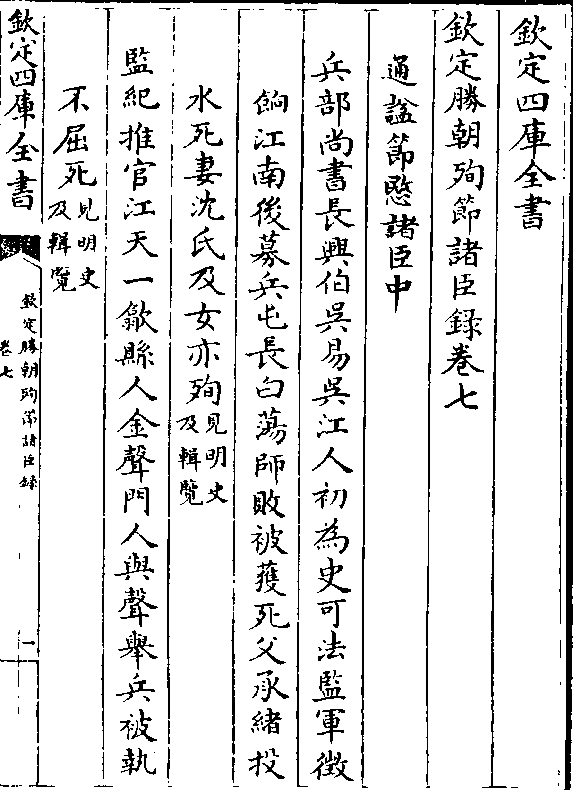 欽定四庫全書
欽定勝朝殉節諸臣録卷七
通諡節愍諸臣中
兵部尚書長興伯吳易吳江人初為史可法監軍徵
餉江南後募兵屯長白蕩師敗被獲死父承緒投
水死妻沈氏及女亦殉見明史
及輯覽
監紀推官江天一歙縣人金聲門人與聲舉兵被執
不屈死見明史
及輯覽
欽定四庫全書
欽定勝朝殉節諸臣録
卷七
一